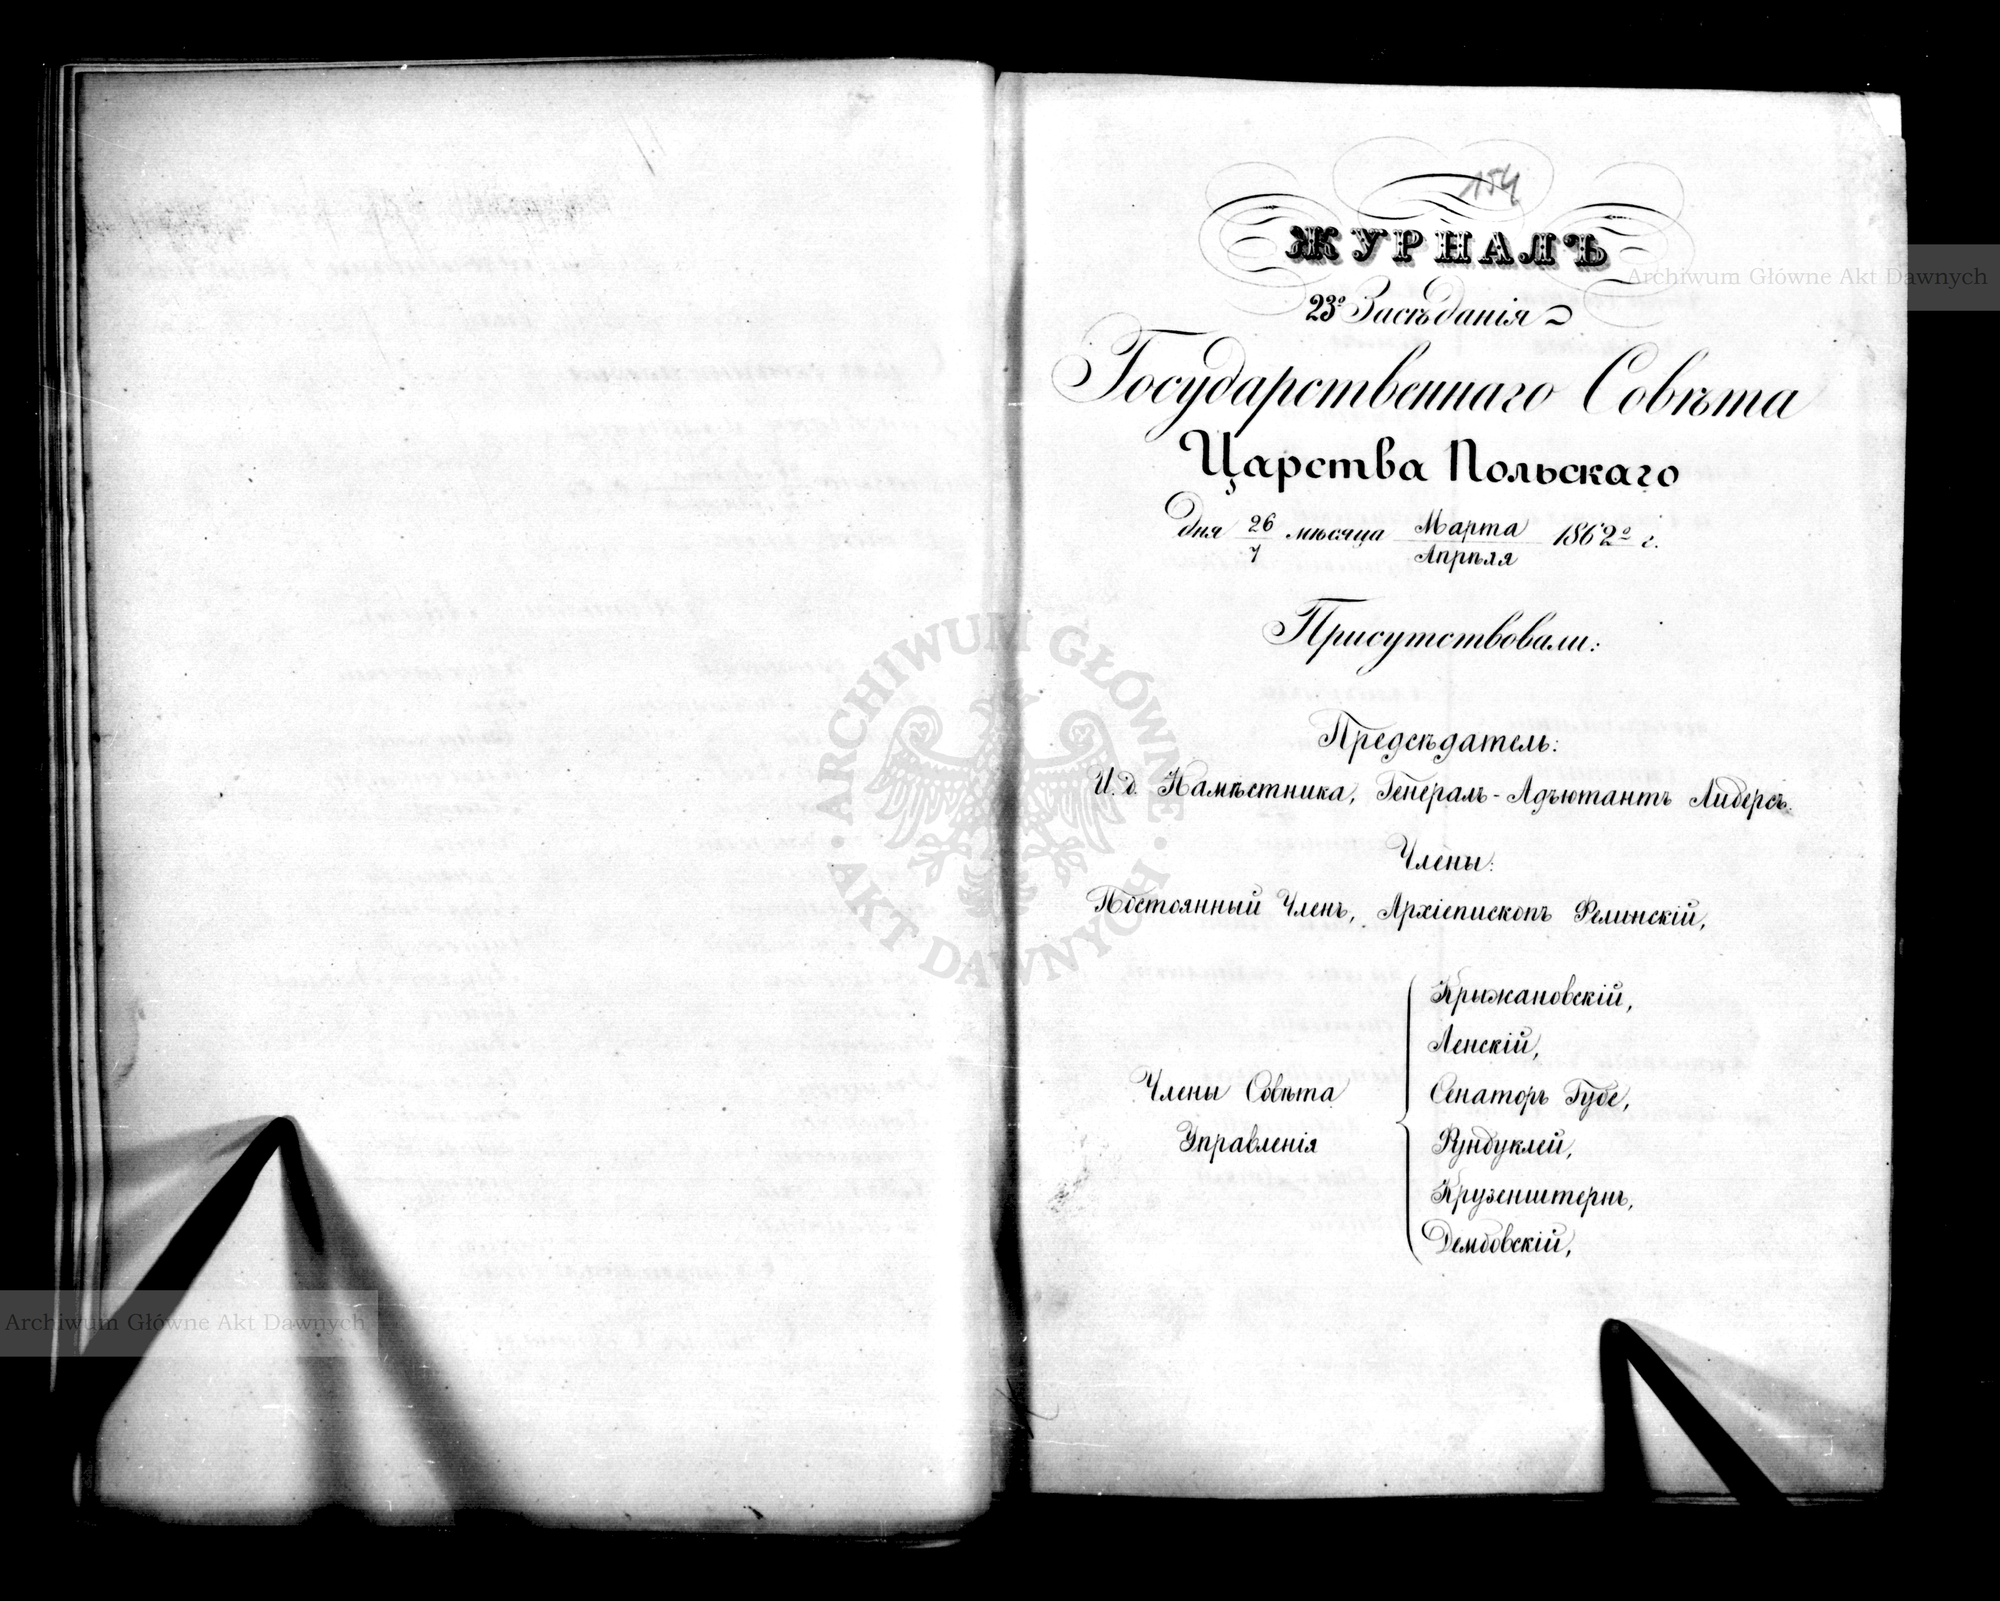 154
ЖУРНАЛЪ
23º Засѣданія
Государственнаго Совѣта
Царства Польскаго
дня 26/7 мѣсяца Марта/Апрѣля 1862º г.
Присутствовали:
Предсѣдатель:
И. д. Намѣстника, Генералъ-Адъютантъ Лидерсъ.
Члены:
Постоянный Членъ, Архіепископъ Фелинскій,
Члены Совѣта
Управленія
Крыжановскій,
Ленскій,
Сенаторъ Губе,
Фундуклей,
Крузенштернъ,
Дембовскій,
Archiwum Główne Akt Dawnych
ARCHIWUM GŁÓWNE AKT DAWNYCH
Archiwum Główne Akt Dawnych